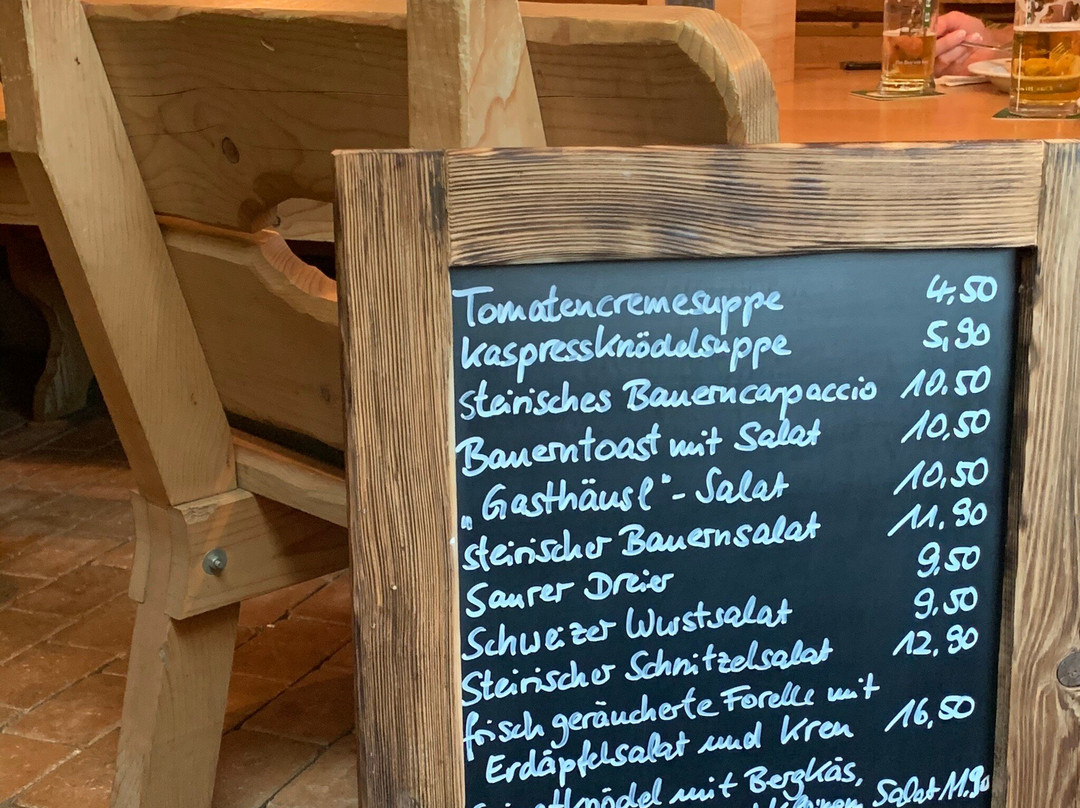 Tomatencremesuppe 4,50
Kaspressknödelsuppe 5,90
steirisches Bauerncarpaccio 10,50
Bauerntoast mit Salat 10,50
„Gasthäusl"-Salat 10,50
steirischer Bauernsalat 11,90
Saurer Dreier 9,50
Schweizer Wurstsalat 9,50
Steirischer Schnitzelsalat 12,90
frisch geräucherte Forelle mit
Erdäpfelsalat und Kren 16,50
mit Bergkäs,
Salat 11.90